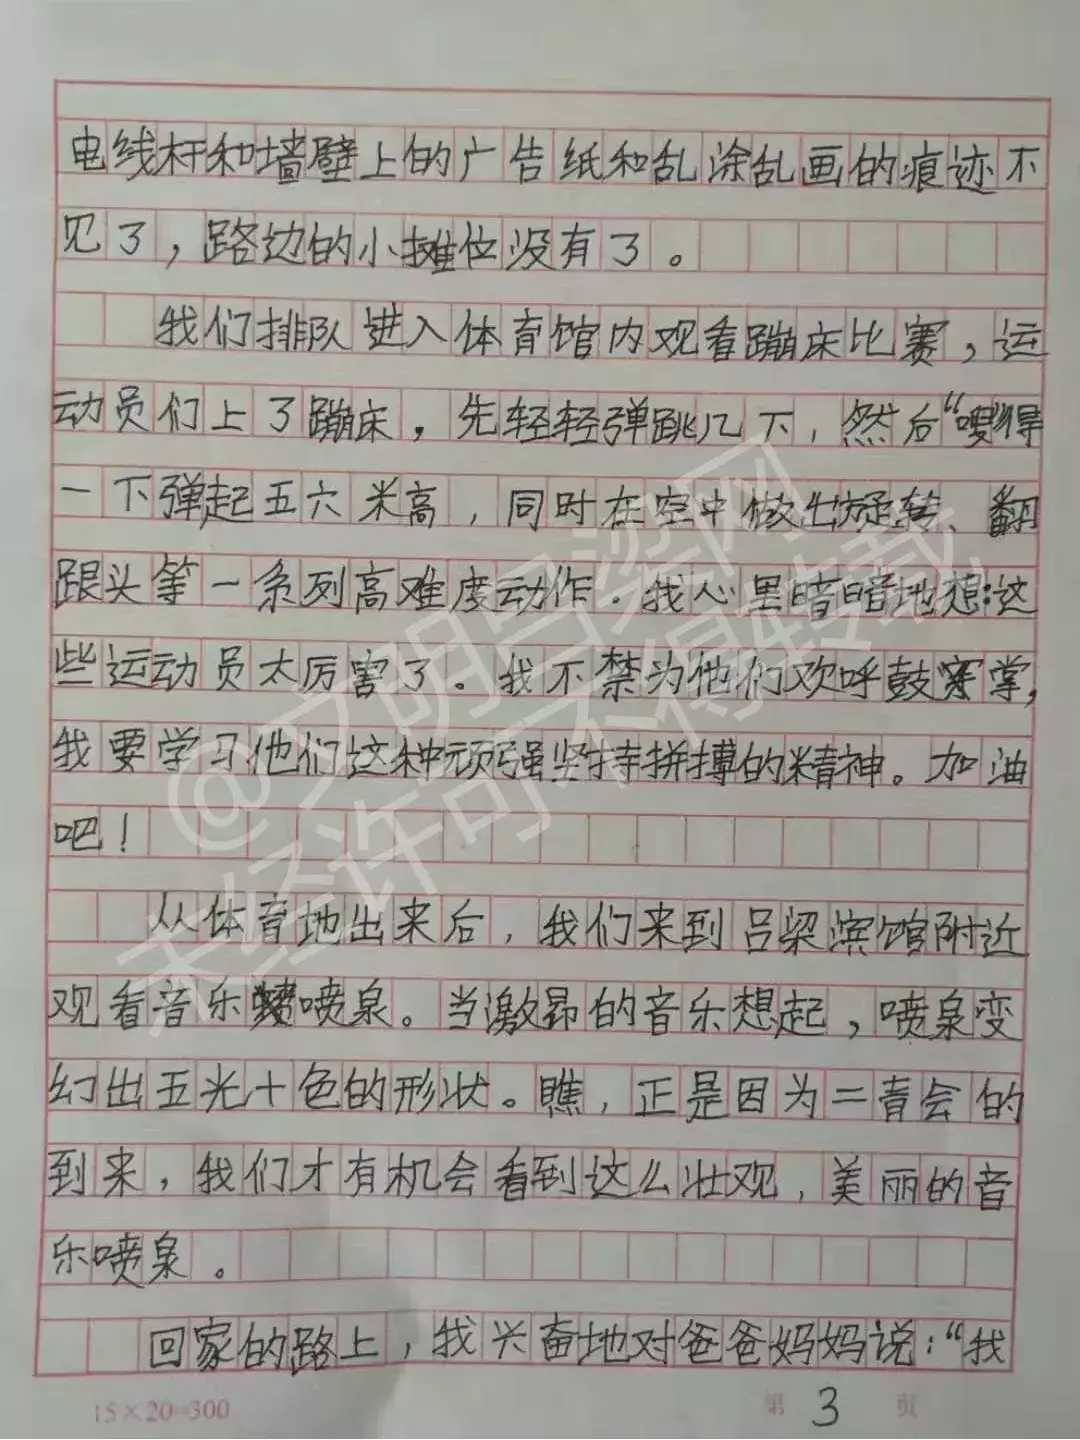 电线杆和墙壁上的广告纸和乱涂乱画的痕迹不
见了，路边的小摊位没有了。
我们排队进入体育馆内观看蹦床比赛，运
动员们上了蹦床，先轻轻弹跳几下，然后“嗖”得
一下弹起五六米高，同时在空中做出旋转、翻
跟头等一系列高难度动作。我心里暗暗地想：这
些运动员太厉害了。我不禁为他们欢呼鼓掌，
我要学习他们这种顽强坚持拼搏的精神。加油
吧！
从体育地出来后，我们来到吕梁滨馆附近
观看音乐喷泉。当激昂的音乐想起，喷泉变
幻出五光十色的形状。瞧，正是因为二青会的
到来，我们才有机会看到这么壮观，美丽的音
乐喷泉。
回家的路上，我兴奋地对爸爸妈妈说：“我
15×20=300 第 3 页
@文明吕梁网
未经许可不得转载